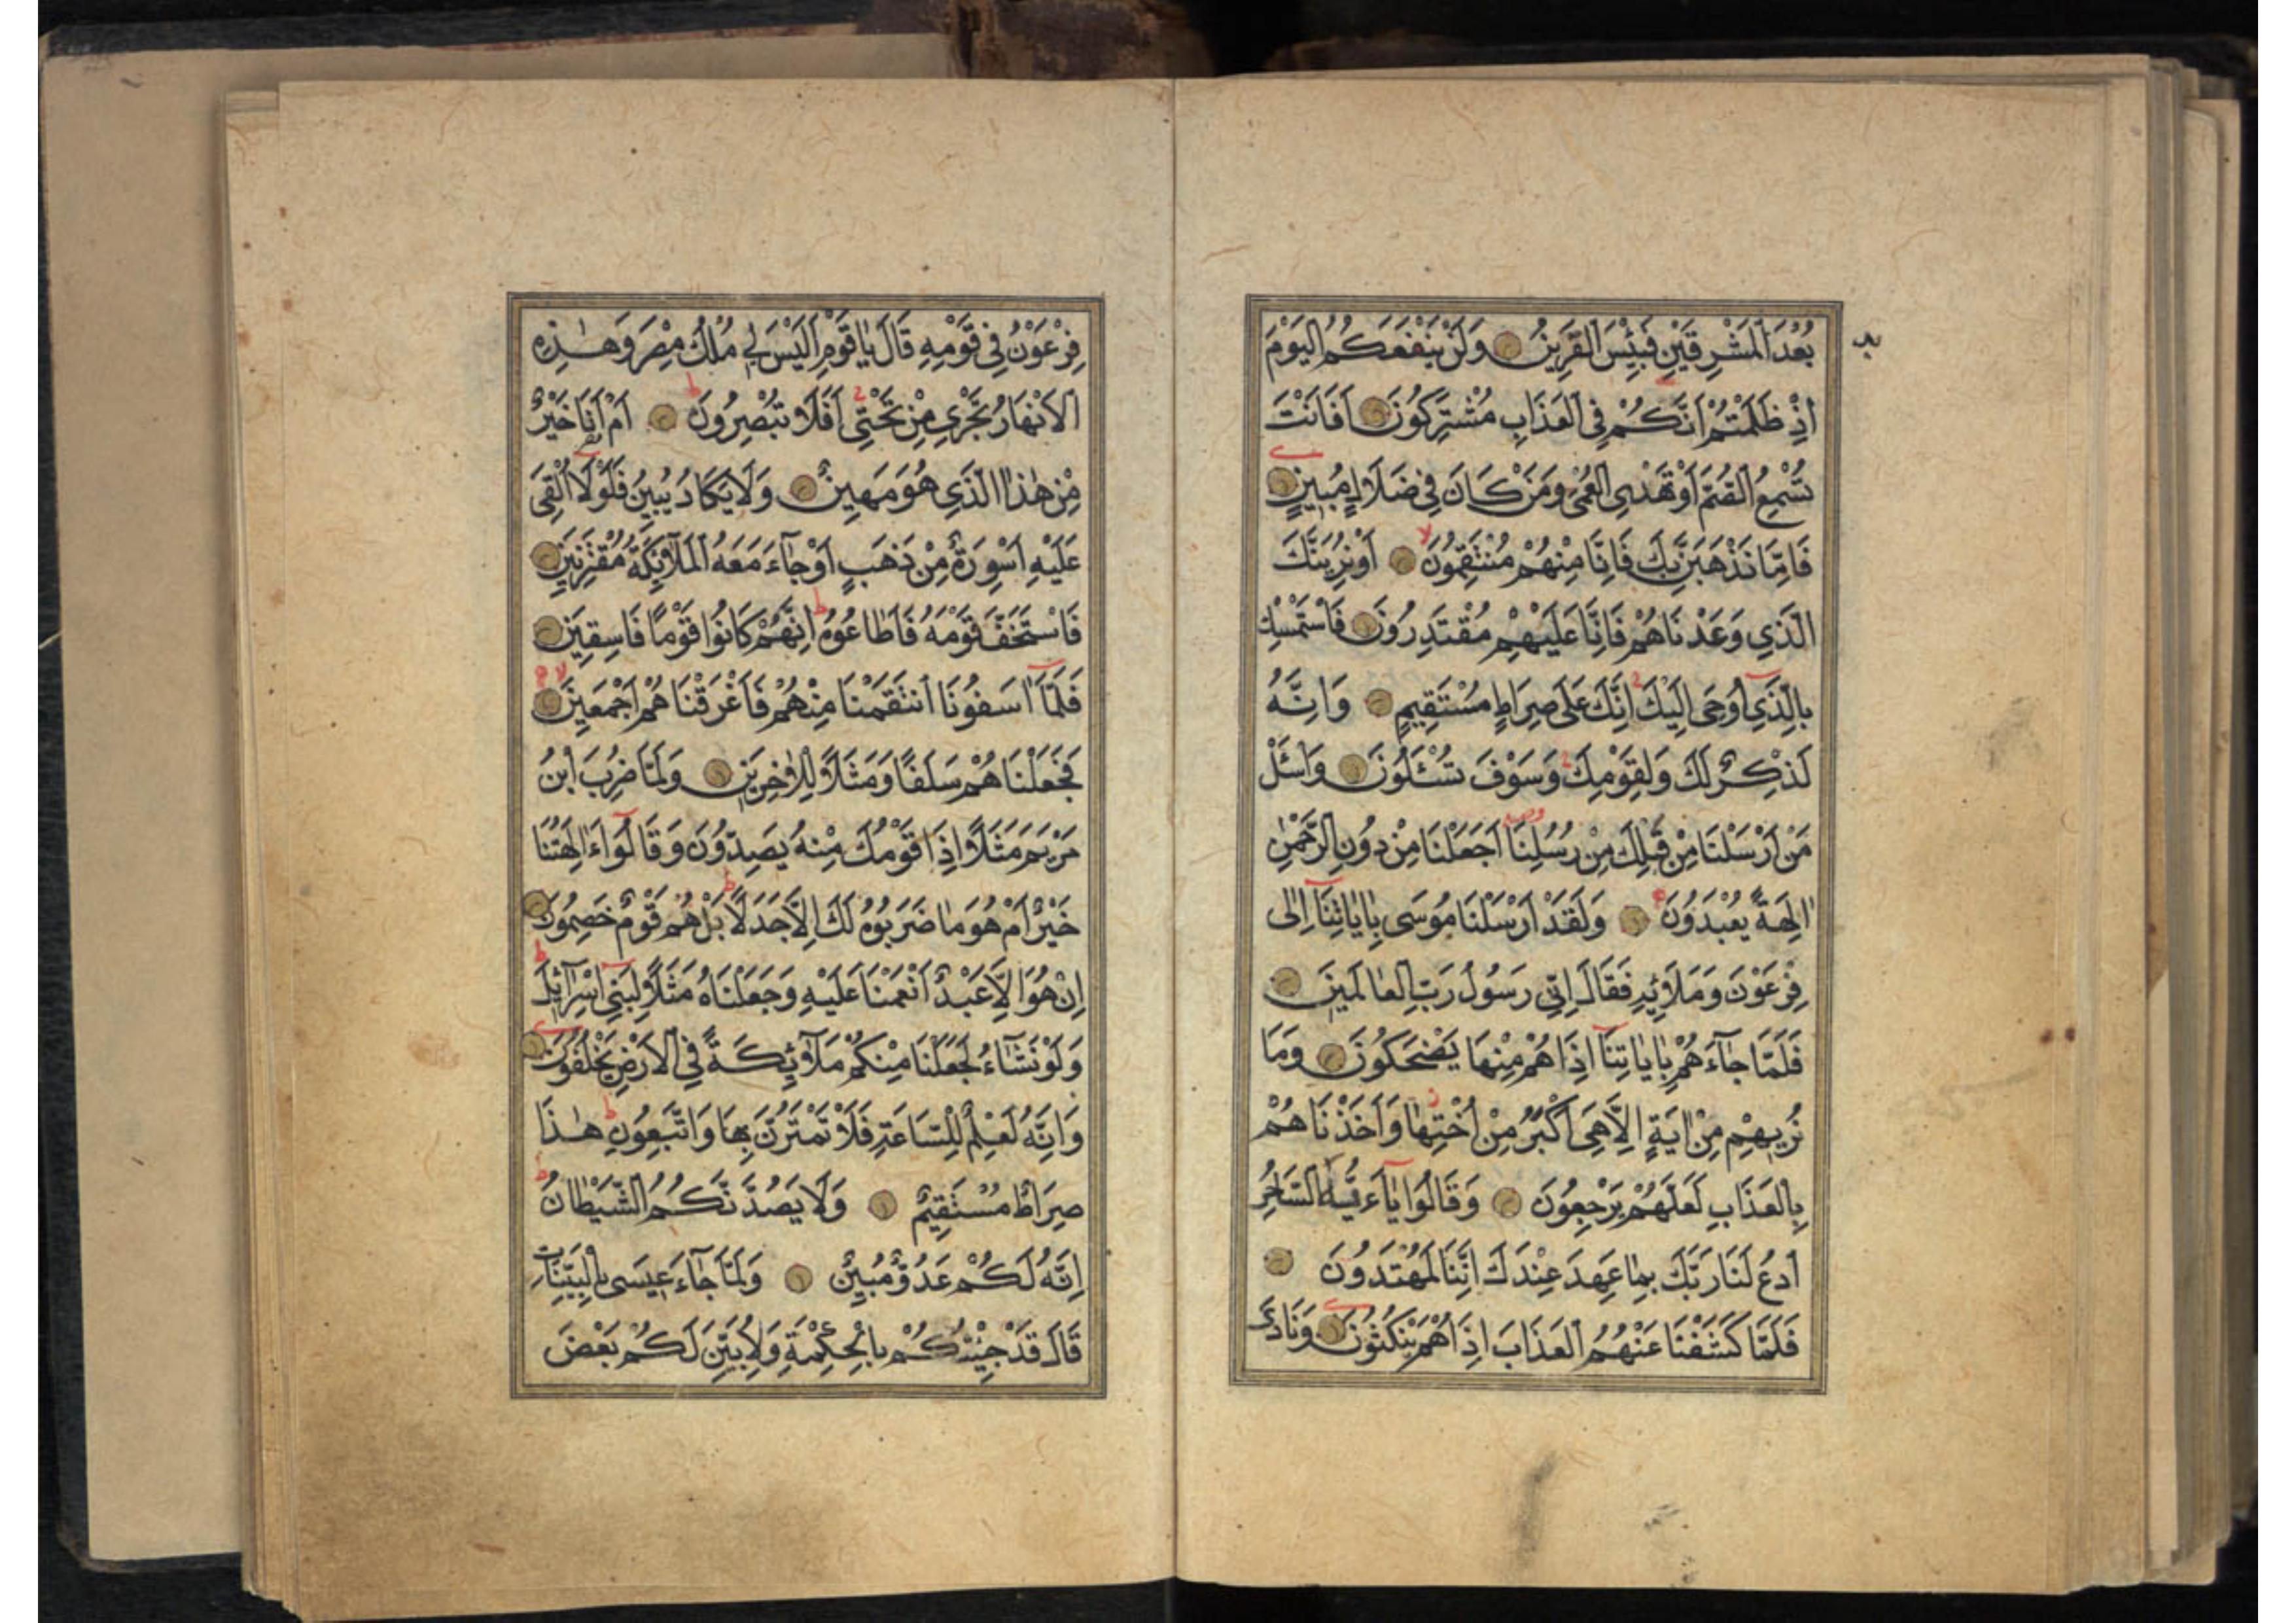 بُعْدَ الْمَشْرِقَيْنِ فَبِئْسَ الْقَرِينُ وَلَنْ يَنْفَعَكُمُ الْيَوْمَ
اِذْ ظَلَمْتُمْ اَنَّكُمْ فِي الْعَذَابِ مُشْتَرِكُونَ اَفَاَنْتَ
تُسْمِعُ الصُّمَّ اَوْ تَهْدِي الْعُمْيَ وَمَنْ كَانَ فِي ضَلَالٍ مُبِينٍ
فَاِمَّا نَذْهَبَنَّ بِكَ فَاِنَّا مِنْهُمْ مُنْتَقِمُونَ اَوْ نُرِيَنَّكَ
الَّذِي وَعَدْنَاهُمْ فَاِنَّا عَلَيْهِمْ مُقْتَدِرُونَ فَاسْتَمْسِكْ
بِالَّذِي اُوحِيَ اِلَيْكَ اِنَّكَ عَلَى صِرَاطٍ مُسْتَقِيمٍ وَاِنَّهُ
لَذِكْرٌ لَكَ وَلِقَوْمِكَ وَسَوْفَ تُسْئَلُونَ وَاسْئَلْ
مَنْ اَرْسَلْنَا مِنْ قَبْلِكَ مِنْ رُسُلِنَا اَجَعَلْنَا مِنْ دُونِ الرَّحْمٰنِ
اٰلِهَةً يُعْبَدُونَ وَلَقَدْ اَرْسَلْنَا مُوسَى بِاٰيَاتِنَا اِلٰى
فِرْعَوْنَ وَمَلَائِهِ فَقَالَ اِنِّي رَسُولُ رَبِّ الْعَالَمِينَ
فَلَمَّا جَاءَهُمْ بِاٰيَاتِنَا اِذَا هُمْ مِنْهَا يَضْحَكُونَ وَمَا
نُرِيهِمْ مِنْ اٰيَةٍ اِلَّا هِيَ اَكْبَرُ مِنْ اُخْتِهَا وَاَخَذْنَاهُمْ
بِالْعَذَابِ لَعَلَّهُمْ يَرْجِعُونَ وَقَالُوا يَاءَيُّهَ السَّاحِرُ
ادْعُ لَنَا رَبَّكَ بِمَا عَهِدَ عِنْدَكَ اِنَّنَا لَمُهْتَدُونَ
فَلَمَّا كَشَفْنَا عَنْهُمُ الْعَذَابَ اِذَا هُمْ يَنْكُثُونَ وَنَادَى
فِرْعَوْنُ فِي قَوْمِهِ قَالَ يَا قَوْمِ اَلَيْسَ لِي مُلْكُ مِصْرَ وَهٰذِهِ
الْاَنْهَارُ تَجْرِي مِنْ تَحْتِي اَفَلَا تُبْصِرُونَ اَمْ اَنَا خَيْرٌ
مِنْ هٰذَا الَّذِي هُوَ مَهِينٌ وَلَا يَكَادُ يُبِينُ فَلَوْلَا اُلْقِيَ
عَلَيْهِ اَسْوِرَةٌ مِنْ ذَهَبٍ اَوْ جَاءَ مَعَهُ الْمَلٰئِكَةُ مُقْتَرِنِينَ
فَاسْتَخَفَّ قَوْمَهُ فَاَطَاعُوهُ اِنَّهُمْ كَانُوا قَوْمًا فَاسِقِينَ
فَلَمَّا اٰسَفُونَا انْتَقَمْنَا مِنْهُمْ فَاَغْرَقْنَاهُمْ اَجْمَعِينَ
فَجَعَلْنَاهُمْ سَلَفًا وَمَثَلًا لِلْاٰخِرِينَ وَلَمَّا ضُرِبَ ابْنُ
مَرْيَمَ مَثَلًا اِذَا قَوْمُكَ مِنْهُ يَصِدُّونَ وَقَالُوا ءَاٰلِهَتُنَا
خَيْرٌ اَمْ هُوَ مَا ضَرَبُوهُ لَكَ اِلَّا جَدَلًا بَلْ هُمْ قَوْمٌ خَصِمُونَ
اِنْ هُوَ اِلَّا عَبْدٌ اَنْعَمْنَا عَلَيْهِ وَجَعَلْنَاهُ مَثَلًا لِبَنِي اِسْرَائِلَ
وَلَوْ نَشَاءُ لَجَعَلْنَا مِنْكُمْ مَلٰئِكَةً فِي الْاَرْضِ يَخْلُفُونَ
وَاِنَّهُ لَعِلْمٌ لِلسَّاعَةِ فَلَا تَمْتَرُنَّ بِهَا وَاتَّبِعُونِ هٰذَا
صِرَاطٌ مُسْتَقِيمٌ وَلَا يَصُدَّنَّكُمُ الشَّيْطَانُ
اِنَّهُ لَكُمْ عَدُوٌّ مُبِينٌ وَلَمَّا جَاءَ عِيسَى بِالْبَيِّنَاتِ
قَالَ قَدْ جِئْتُكُمْ بِالْحِكْمَةِ وَلِاُبَيِّنَ لَكُمْ بَعْضَ